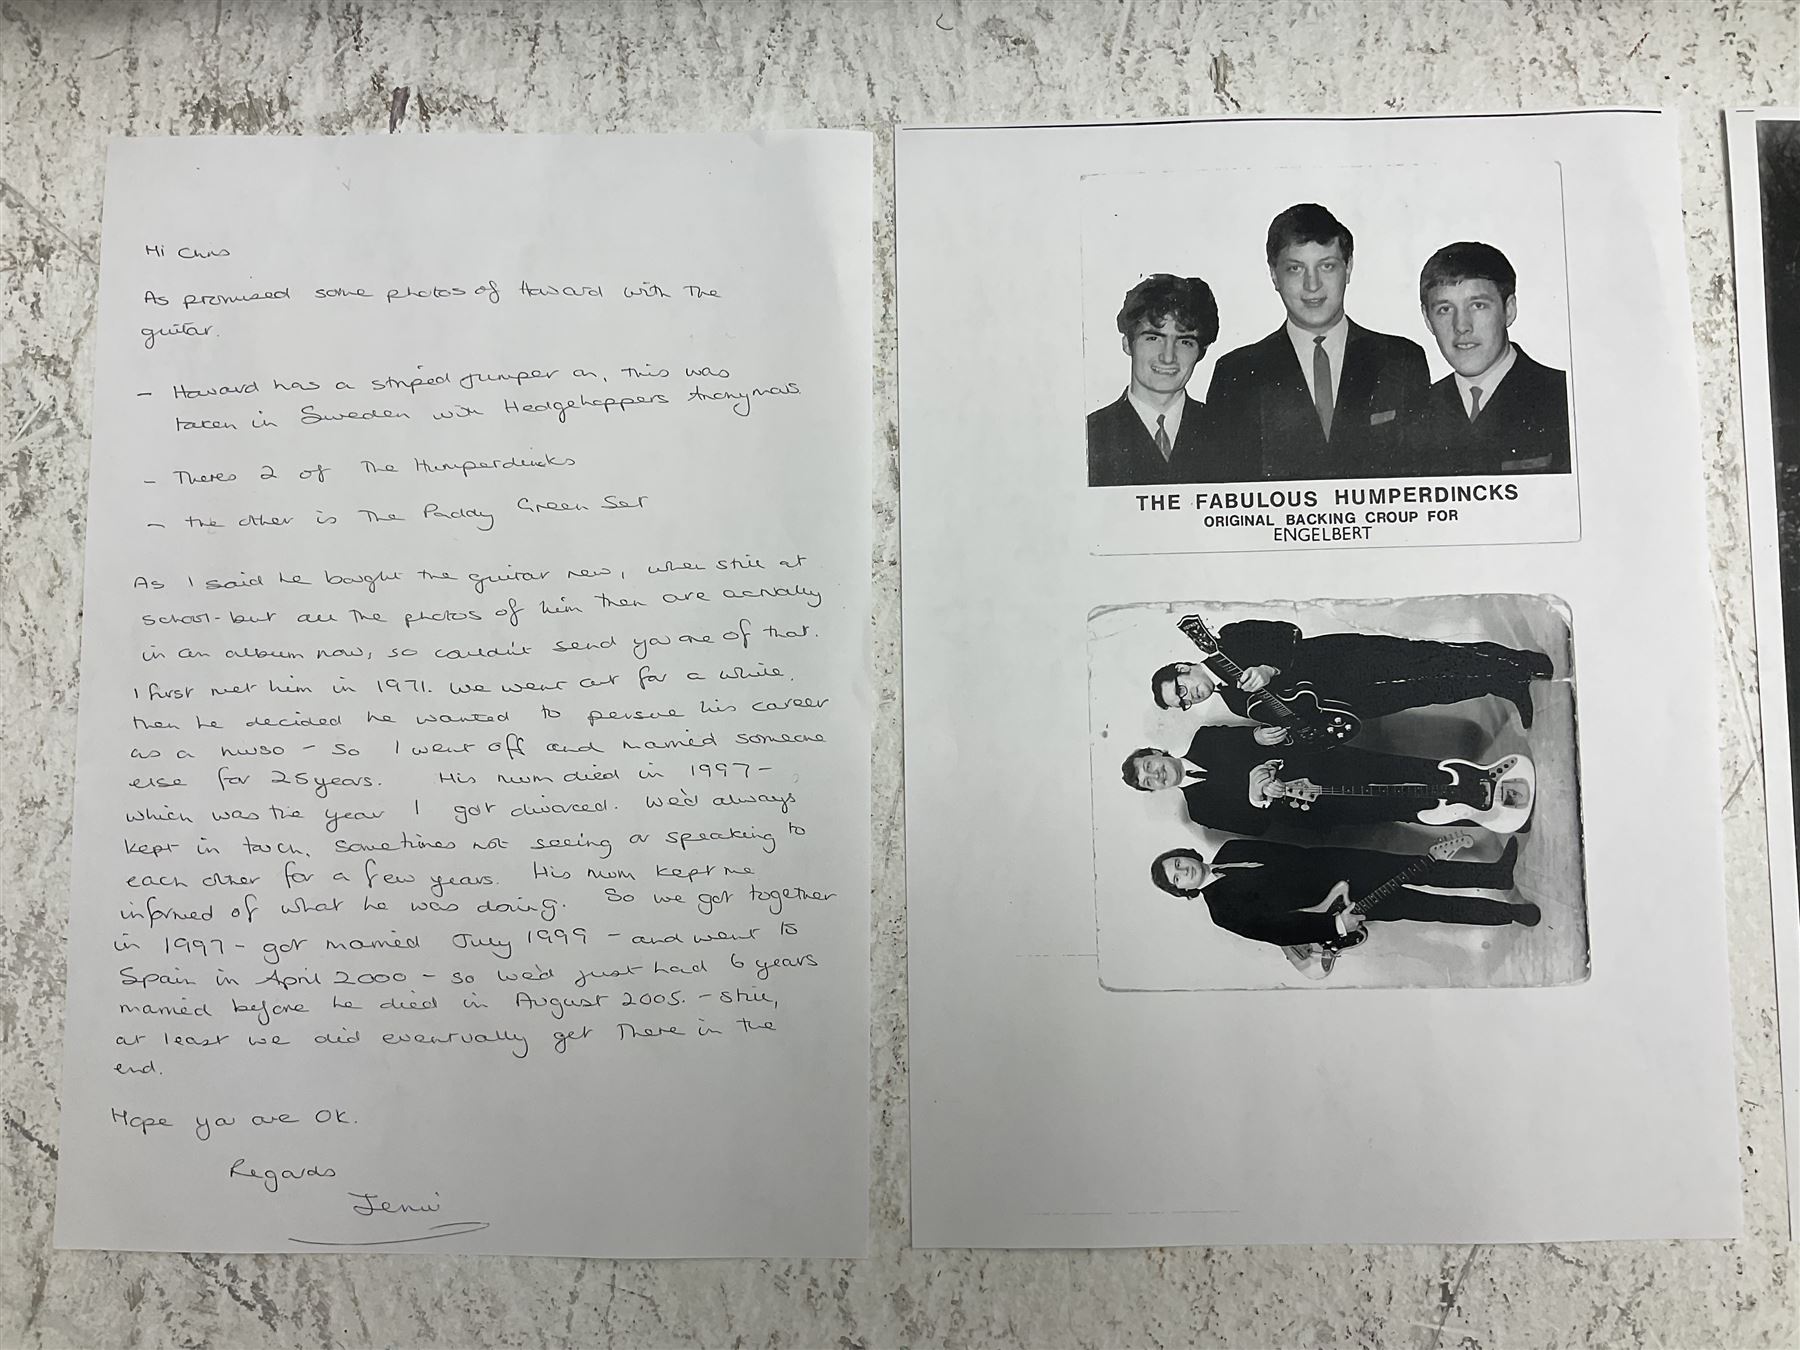 Hi Chris
As promised some photos of Howard with the
guitar.
- Howard has a striped jumper on, this was
taken in Sweden with Hedgehoppers Anonymous.
- Theres 2 of The Humperdincks
- the other is The Paddy Green Set
As I said he bought the guitar new, when still at
school - but all the photos of him then are actually
in an album now, so couldn't send you one of that.
I first met him in 1971. We went out for a while,
then he decided he wanted to persue his career
as a muso - so I went off and married someone
else for 25 years. His mum died in 1997 -
which was the year I got divorced. We'd always
kept in touch, sometimes not seeing or speaking to
each other for a few years. His mum kept me
informed of what he was doing. So we got together
in 1997 - got married July 1999 - and went to
Spain in April 2000 - so we'd just had 6 years
married before he died in August 2005. - still,
at least we did eventually get there in the
end.
Hope you are OK.
Regards
Jenni
THE FABULOUS HUMPERDINCKS
ORIGINAL BACKING CROUP FOR
ENGELBERT